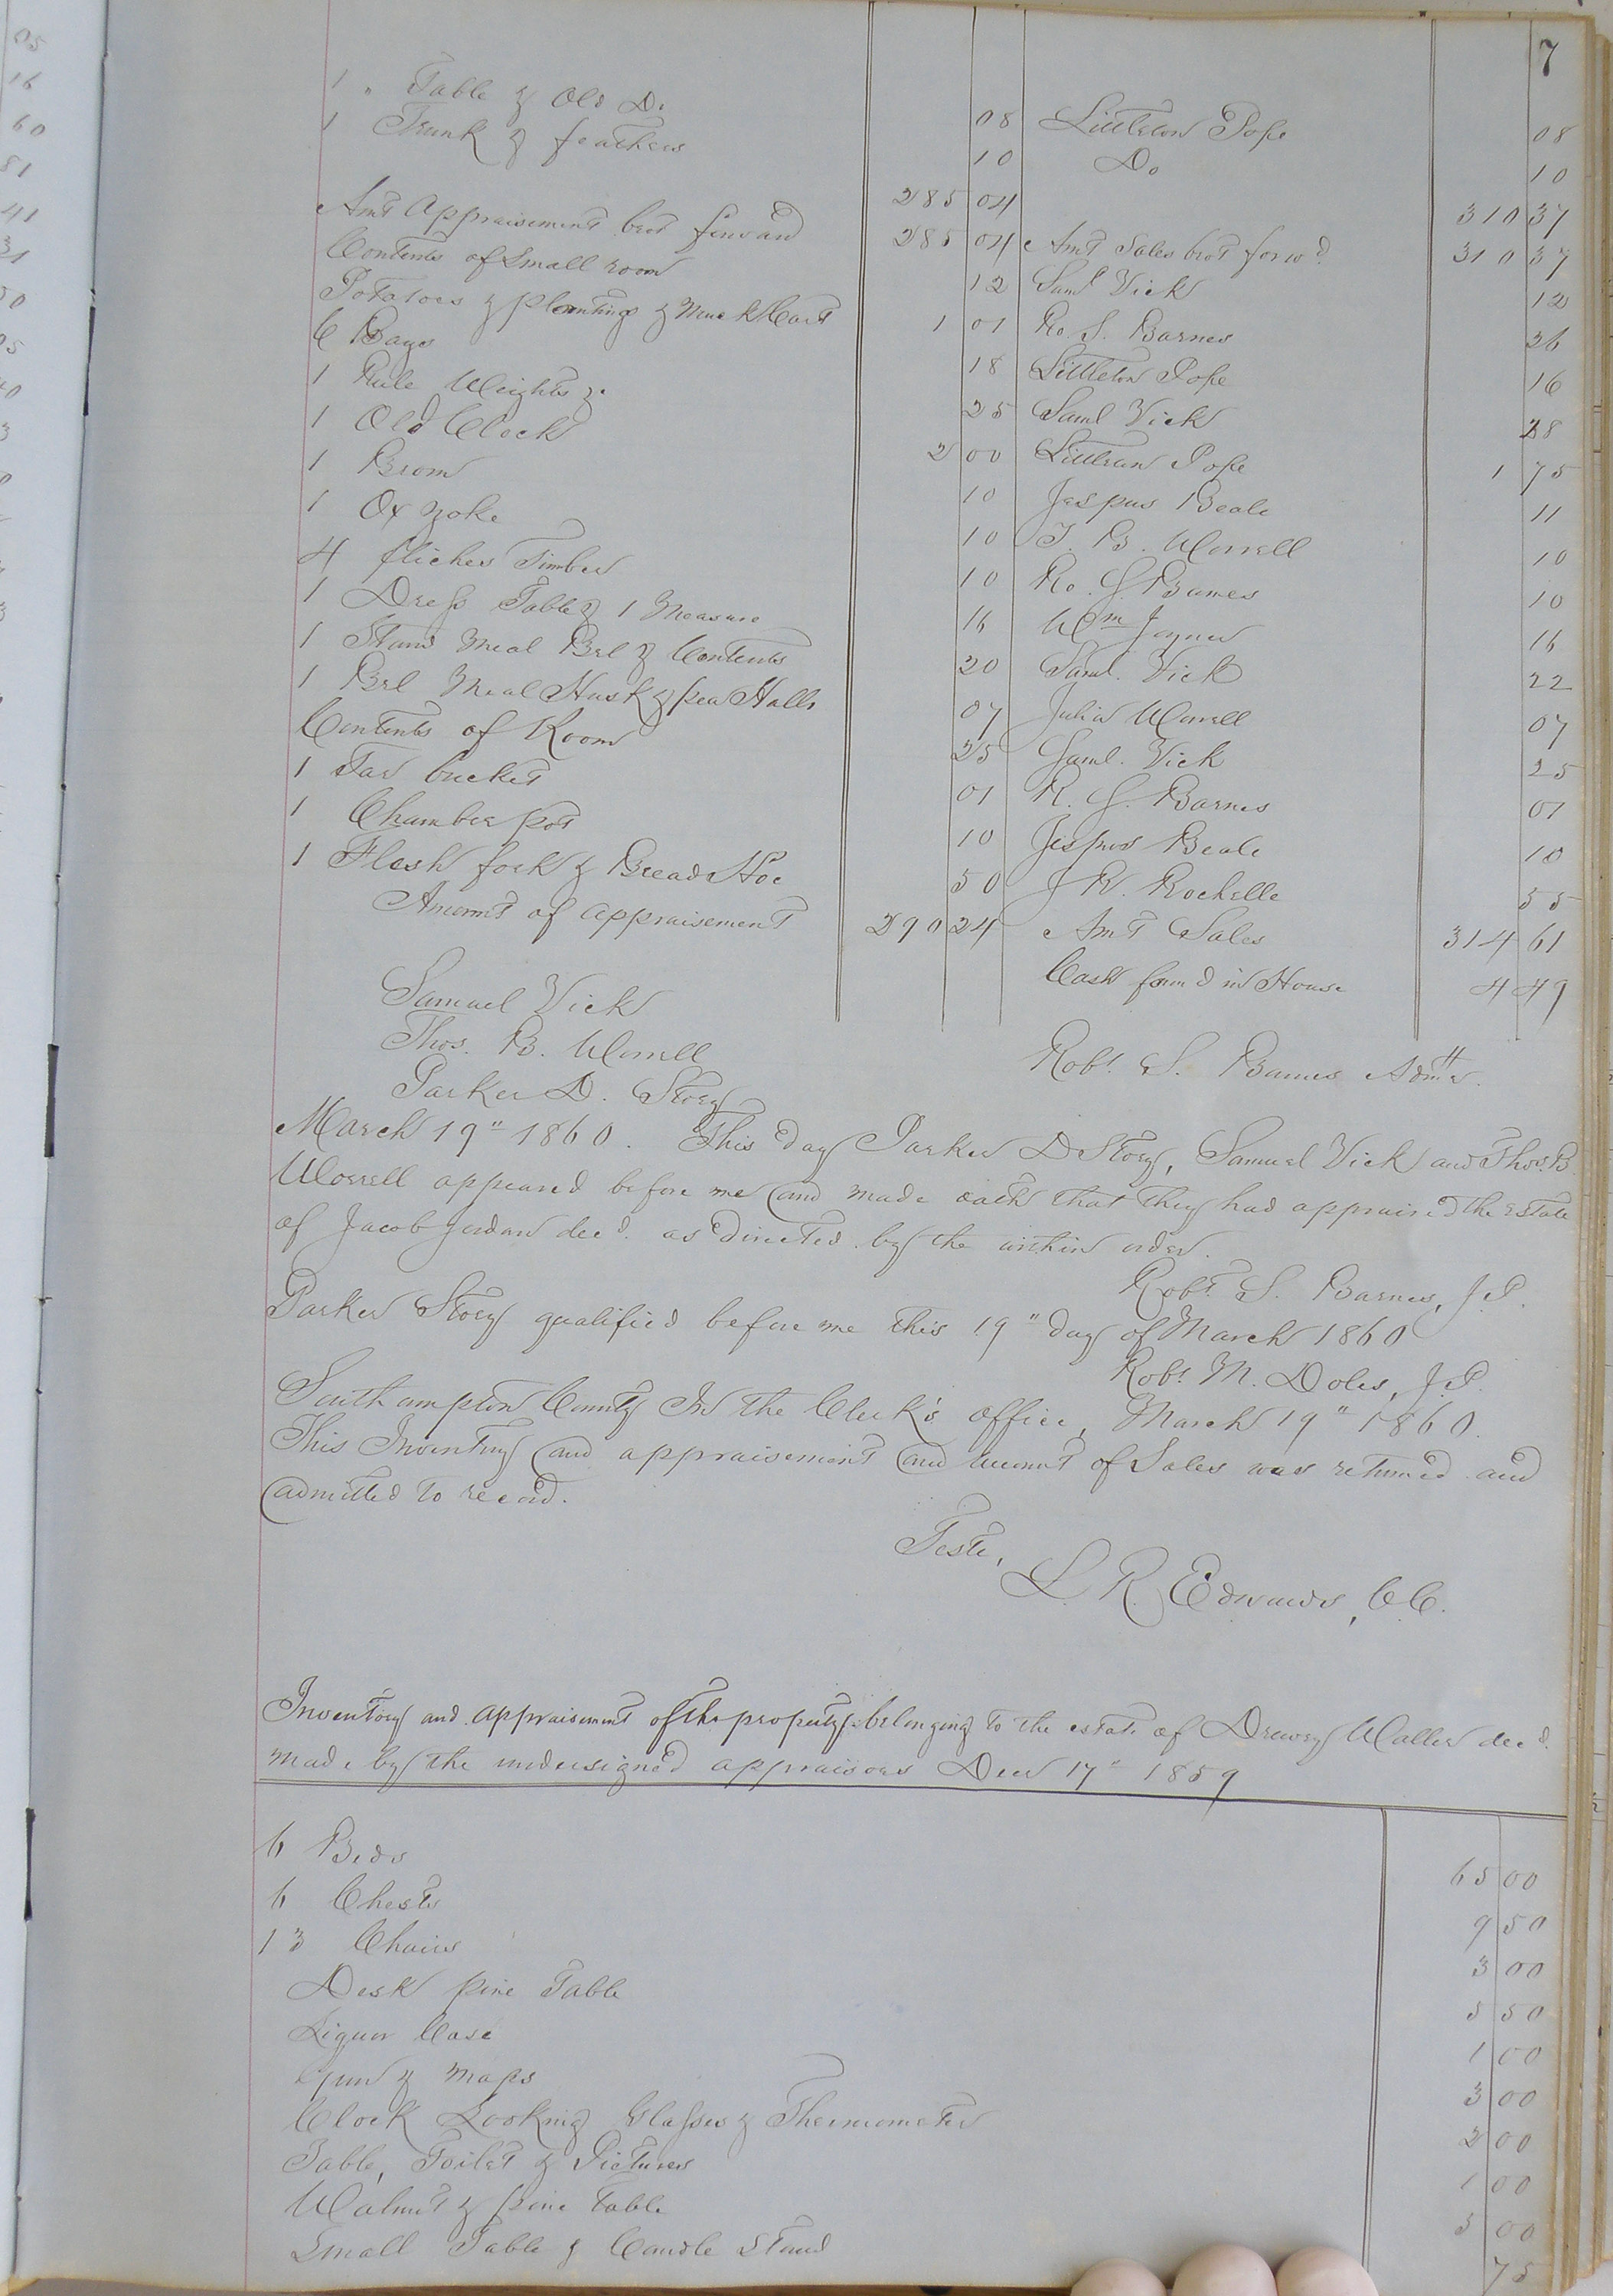 7
1 " Table & Old Do 08 Littleton Pope 08
1 Trunk & feathers 10 Do 10
285 04 310 37
Amt Appraisement brot forward 285 04 Amt Sales brot forwd. 310 37
Contents of Small room 12 Saml Vick 12
Potatoes & planting & Muck Cart 1 01 Ro. S. Barnes 26
6 Bags 18 Littleton Pope 16
1 Rule Weights &c 25 Saml Vick 28
1 Old Clock 2 00 Littleton Pope 1 75
1 Brom 10 Jespus Beale 11
1 Ox yoke 10 T. B. Worrell 10
4 fliches Timber 10 Ro. S. Barnes 10
1 Dress Table & 1 Measure 16 Wm Joyner 16
1 Stand Meal Brl & Contents 20 Saml. Vick 22
1 Brl Meal Husk & pea Halls 07 Julia Worrell 07
Contents of Room 25 Saml. Vick 25
1 Tar bucket 01 R. S. Barnes 01
1 Chamber pot 10 Jespus Beale 10
1 Flesh fork & Bread Hoe 50 J R. Rochelle 55
Amount of appraisement 290 24 Amt Sales 314 61
Cash found in House 4 49
Samuel Vick
Thos. B. Worrell
Parker D. Story
Robt. S. Barnes Admr.
March 19" 1860. This day Parker D Story, Samuel Vick and Thos. B
Worrell appeared before me and made oath that they had appraised the Estate
of Jacob Jordan decd. as directed by the within order.
Robt S. Barnes, J.P.
Parker Story qualified before me this 19" day of March 1860
Robt. M. Doles, J.P.
Southampton County In the Clerk's office, March 19" 1860.
This Inventory and appraisement and account of Sales was returned and
admitted to record.
Teste,
L R. Edwards, C C.
Inventory and appraisement of the property belonging to the estate of Drewry Waller decd.
made by the undersigned appraisers Decr 17" 1859
6 Beds 65 00
6 Chests 9 50
13 Chairs 3 00
Desk pine Table 5 50
Liquor Case 1 00
Gun & maps 3 00
Clock Looking Glasses & Thermometer 2 00
Table, Toilet & Pictures 1 00
Walnut & pine table 5 00
Small Table & Candle Stand 75